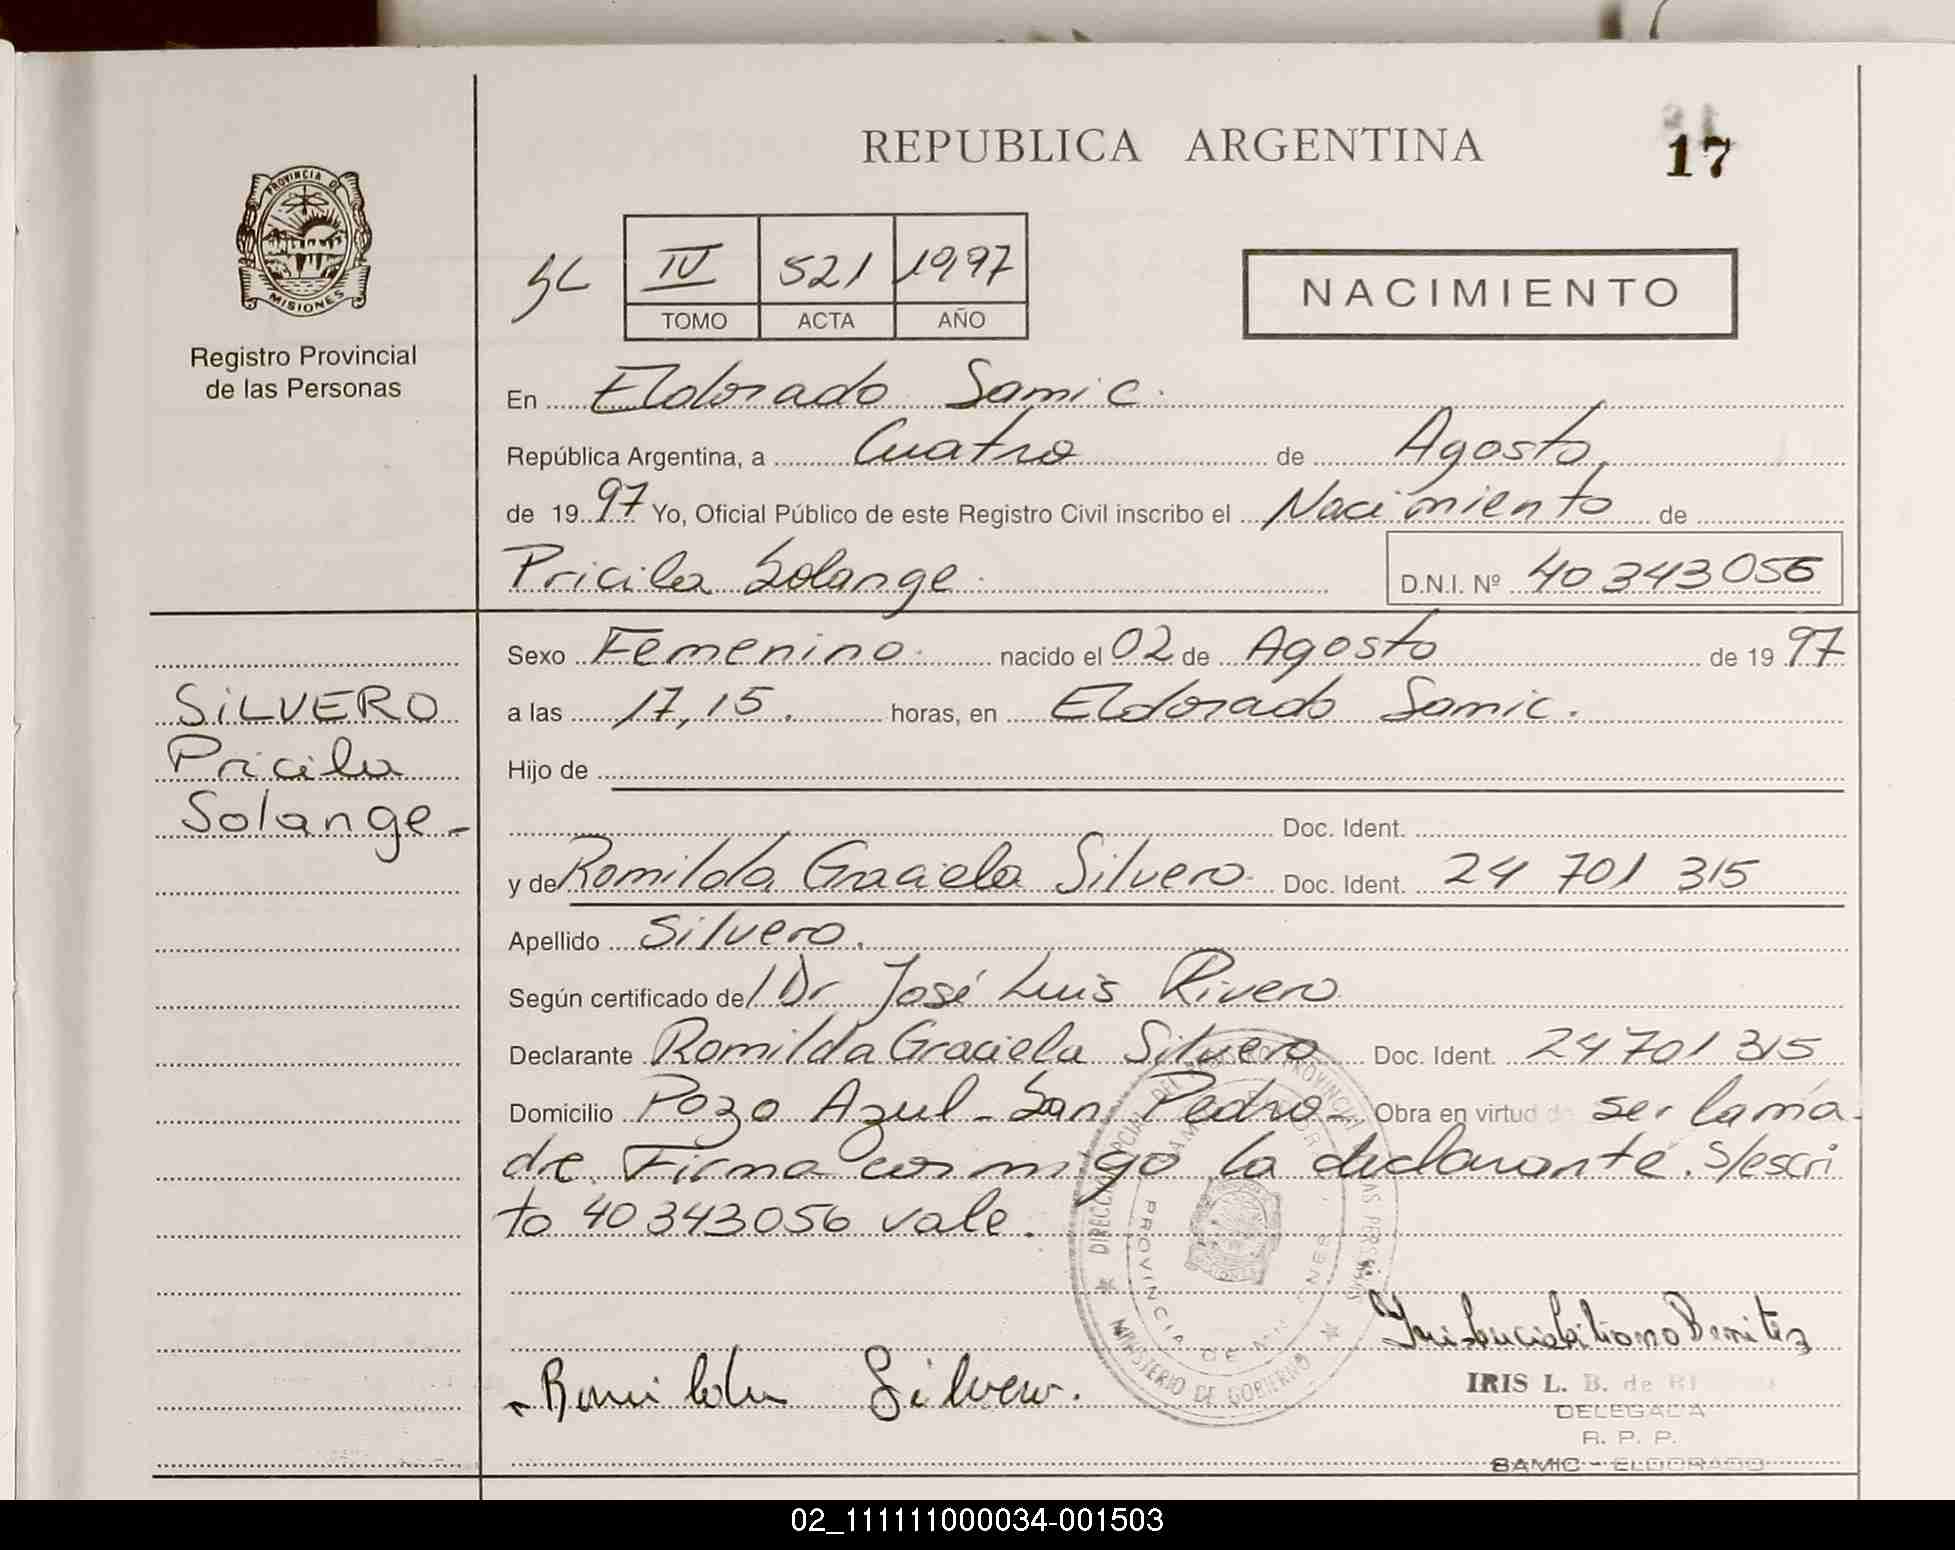 REPUBLICA ARGENTINA
17
PROVINCIA DE
MISIONES
Registro Provincial
de las Personas
IV 521 1997
TOMO ACTA AÑO
NACIMIENTO
En Eldorado Samic.
República Argentina, a Cuatro de Agosto
de 1997 Yo, Oficial Público de este Registro Civil inscribo el Nacimiento de
Pricila Solange. D.N.I. Nº 40 343 056
Sexo Femenino. nacido el 02 de Agosto de 1997
a las 17,15. horas, en Eldorado Samic.
SiLVERO
Pricila
Solange.-
Hijo de
Doc. Ident.
y de Romilda Graciela Silvero. Doc. Ident. 24 701 315
Apellido Silvero.
Según certificado del Dr José Luis Rivero
Declarante Romilda Graciela Silvero Doc. Ident. 24 701 315
Domicilio Pozo Azul - San Pedro - Obra en virtud de ser la ma-
dre. Firma con migo la declarante. S/escri
to 40 343 056 vale.
DIRECCION
MINISTERIO DE GOBIERNO
PROVINCIA DE
Romilda Silvero.
IRIS L. B. de
DELEGADA
R. P. P.
SAMIC - ELDORADO
02_111111000034-001503